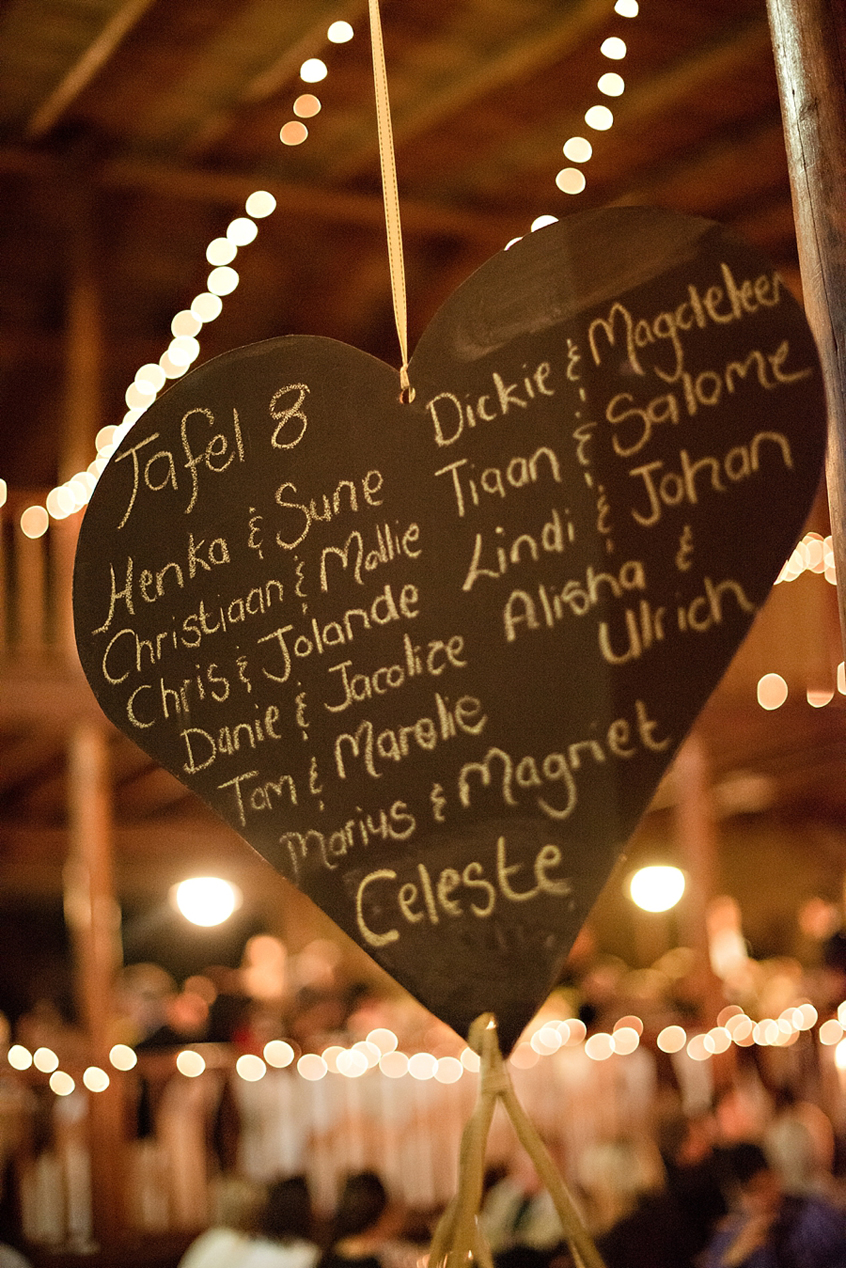 Tafel 8
Henka & Sune
Christiaan & Mollie
Chris & Jolande
Danie & Jacolize
Tom & Marolie
Marius & Magriet
Celeste
Dickie & Magdeleen
Tiaan & Salome
Lindi & Johan
Alisha &
Ulrich